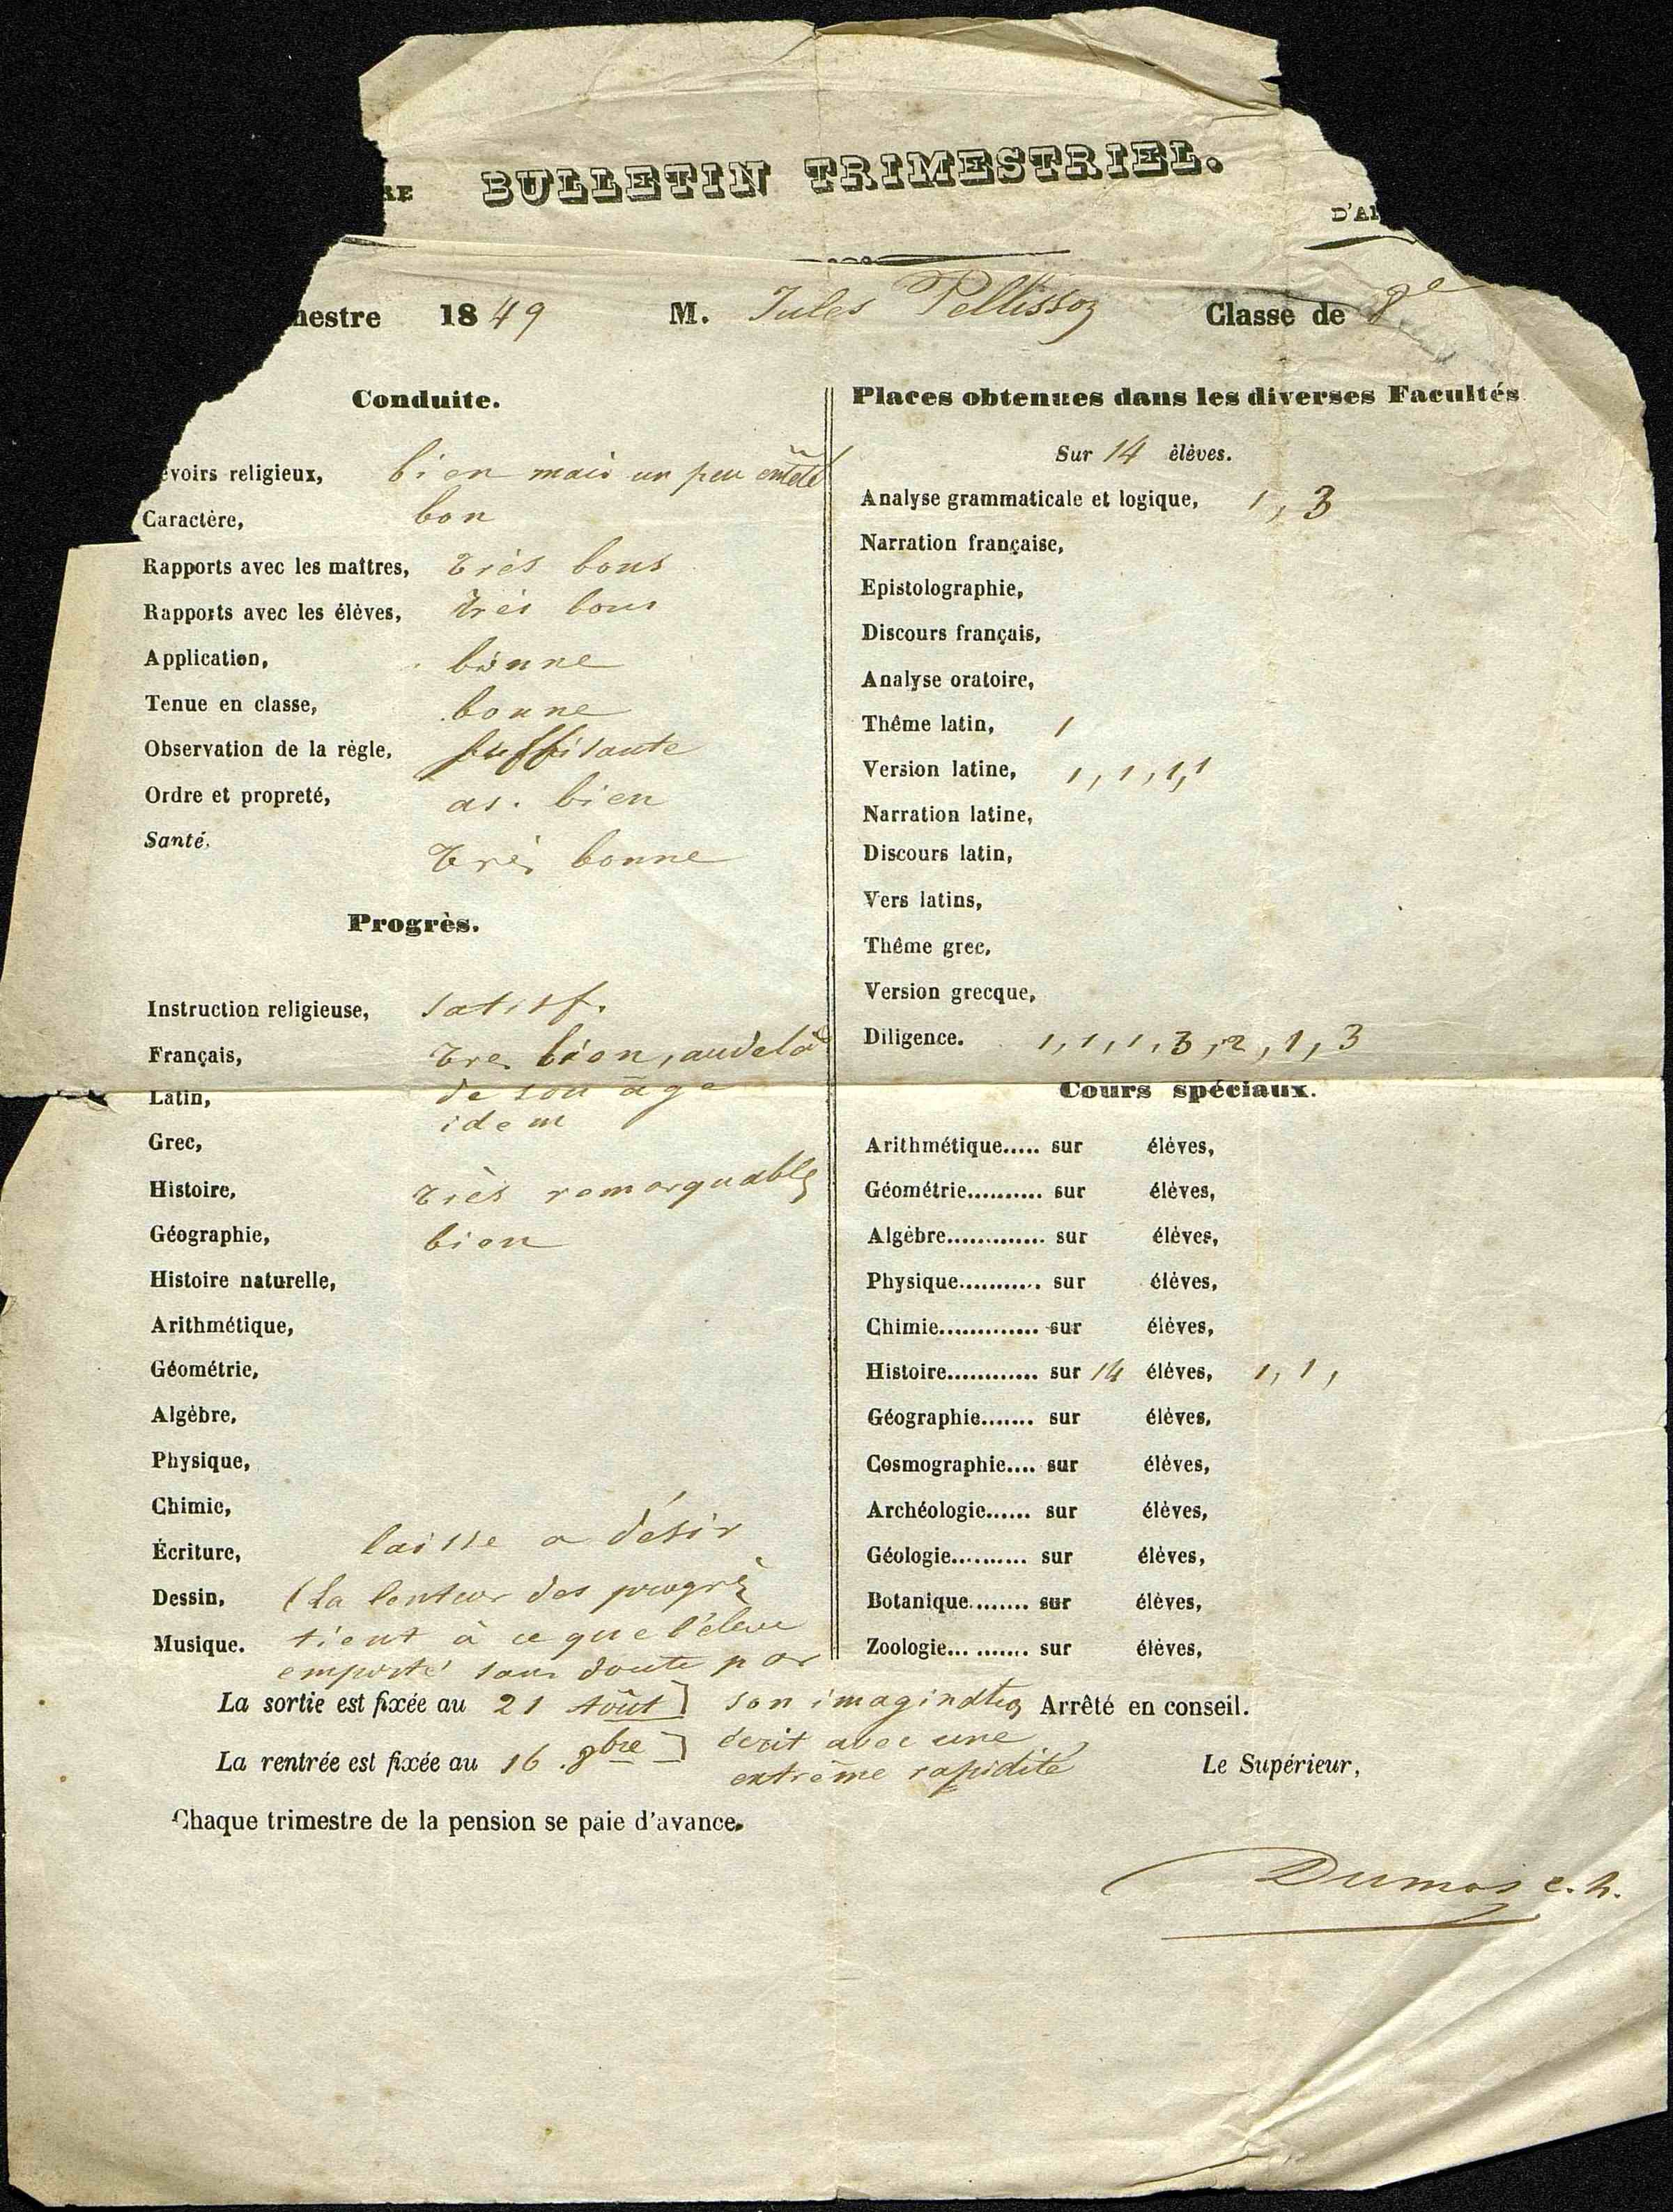 RE BULLETIN TRIMESTRIEL.
D'A
mestre 1849 M. Jules Pellissoz Classe de 8e
Conduite.
evoirs religieux, bien mais un peu entêté
Caractère, bon
Rapports avec les maîtres, très bons
Rapports avec les élèves, très bons
Application, bonne
Tenue en classe, bonne
Observation de la règle, suffisante
Ordre et propreté, as. bien
Santé. très bonne
Progrès.
Instruction religieuse, satisf.
Français, tres bien, audelà
de son âge
Latin, idem
Grec,
Histoire, très remarquable
Géographie, bien
Histoire naturelle,
Arithmétique,
Géométrie,
Algèbre,
Physique,
Chimie,
Écriture, laisse a désir
Dessin, (La lenteur des progrès
Musique. tient à ce que l'élève
emporté sans doute par
son imagination
écrit avec une
extrême rapidité
Places obtenues dans les diverses Facultés
Sur 14 élèves.
Analyse grammaticale et logique, 1, 3
Narration française,
Epistolographie,
Discours français,
Analyse oratoire,
Thême latin, 1
Version latine, 1, 1, 1, 1
Narration latine,
Discours latin,
Vers latins,
Thême grec,
Version grecque,
Diligence. 1, 1, 1, 3, 2, 1, 3
Cours spéciaux.
Arithmétique..... sur élèves,
Géométrie.......... sur élèves,
Algèbre............. sur élèves,
Physique........... sur élèves,
Chimie............. sur élèves,
Histoire............ sur 14 élèves, 1, 1,
Géographie....... sur élèves,
Cosmographie.... sur élèves,
Archéologie...... sur élèves,
Géologie.......... sur élèves,
Botanique........ sur élèves,
Zoologie.......... sur élèves,
La sortie est fixée au 21 Août
La rentrée est fixée au 16 8bre
Arrêté en conseil.
Le Supérieur,
Chaque trimestre de la pension se paie d'avance.
Dumas c. h.